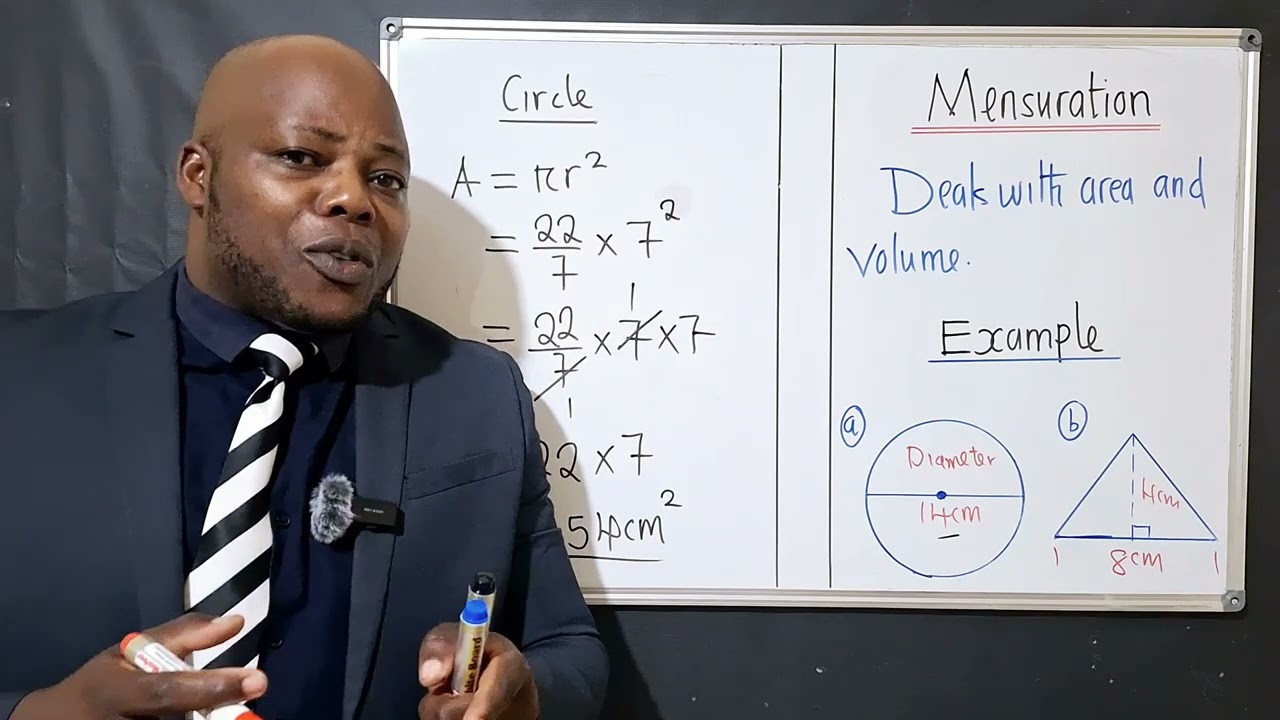 Circle
A = πr²
= 22/7 × 7²
= 22/7 × 7 × 7
1
1
22 × 7
54cm²
Mensuration
Deals with area and
volume.
Example
a
Diameter
14cm
b
4cm
8cm